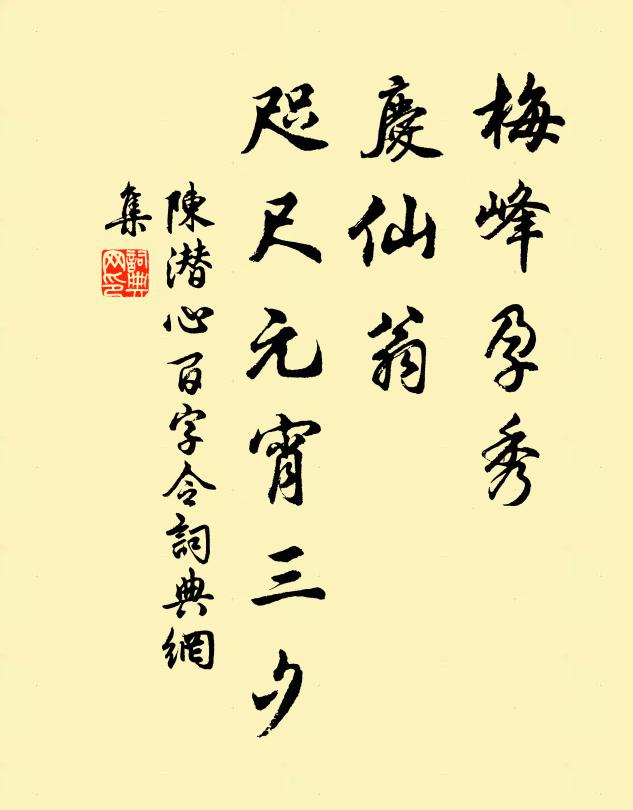 梅峰孕秀
慶仙翁
咫尺元宵三夕
陳潜心百字令詞典網
集
詞典网印